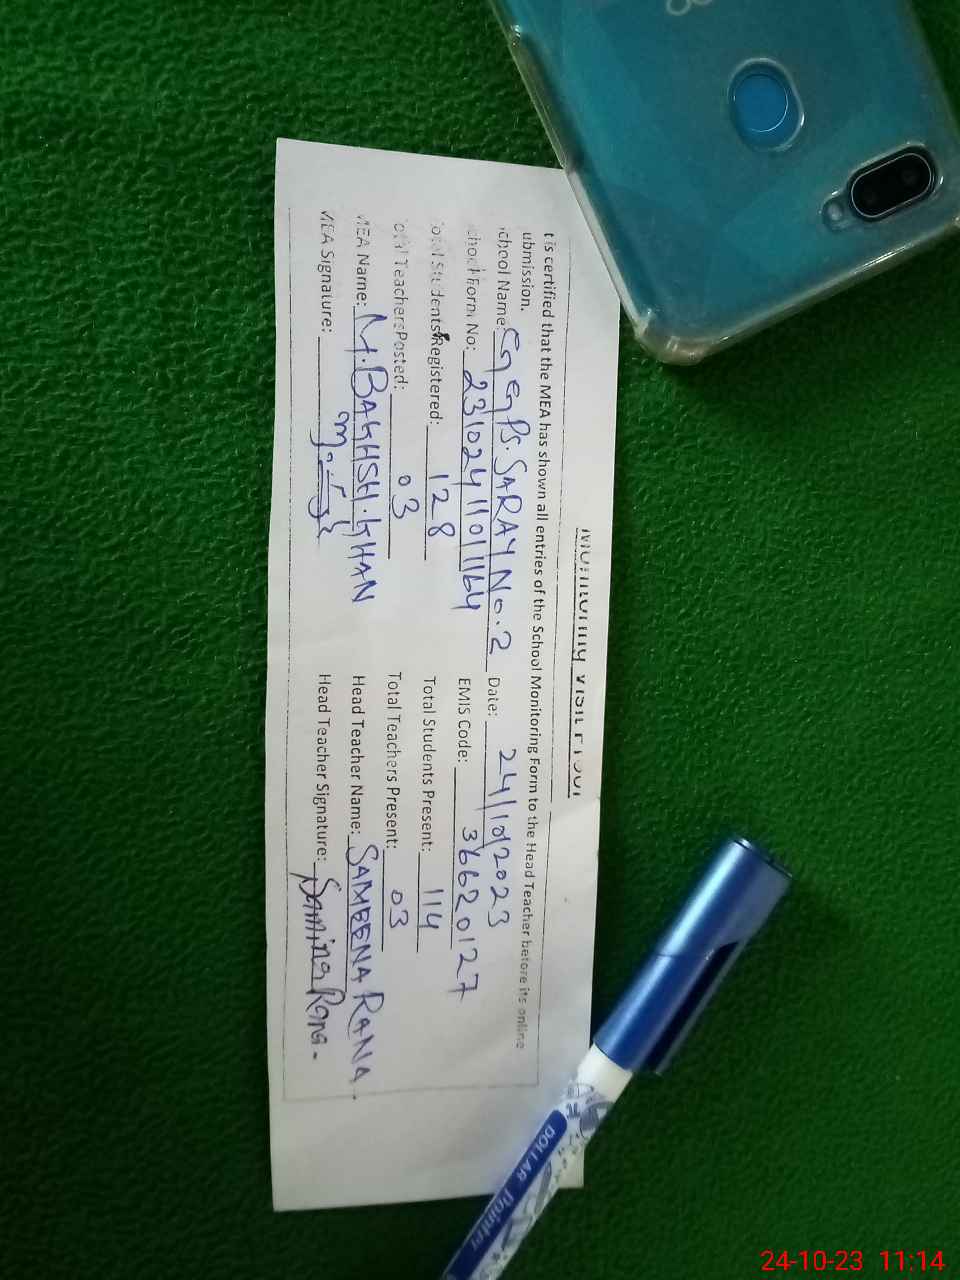 Monitoring Visit Proof
t is certified that the MEA has shown all entries of the School Monitoring Form to the Head Teacher before its online
ubmission.
chool Name: GGPS. SARAY No. 2 Date: 24/10/2023
choolForm No: 23102411011164 EMIS Code: 36620127
otal Students Registered: 128 Total Students Present: 114
otal Teachers Posted: 03 Total Teachers Present: 03
MEA Name: M. BAKHSH. KHAN Head Teacher Name: SAMEENA RANA.
MEA Signature: Head Teacher Signature: Samina Rana.
DOLLAR Pointer
24-10-23 11:14